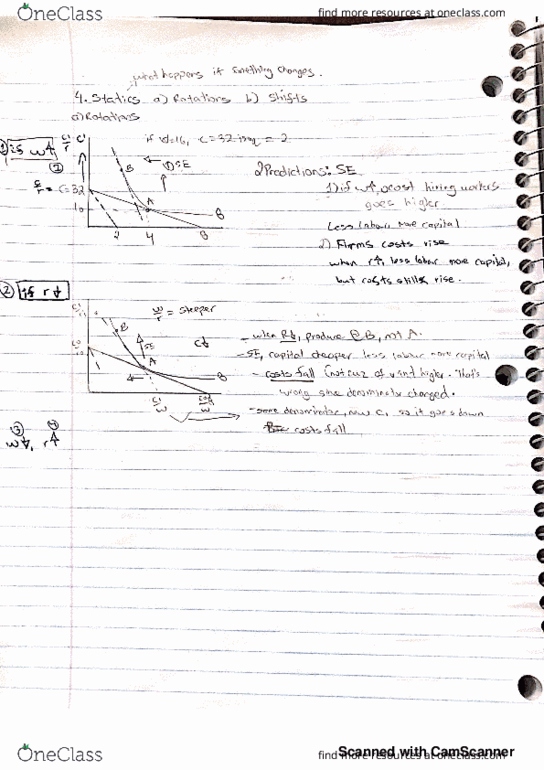 OneClass
find more resources at oneclass.com
what happens if something changes.
4. Statics a) Rotations b) Shifts
a) Rotations
① if w↑
C'
if w=16, C=32 = 2
SE
B
A
C = 32
2 4 8
2 Predictions: SE
1) if w↑, cost hiring workers
goes higher
Less labour more capital
2) Firms costs rise
when r↑, less labor more capital,
but costs still rise.
② if r↓
w/r = steeper
C↓
SE
B
A
- when R↓, produce @ B, not A.
- SE, capital cheaper less labour more capital
- costs fall (not cuz of v int higher. That's
wrong since denominator changed.
- same denominator, new C, so it goes down
costs fall
③ ④
w↓, r↑
OneClass
find more resources at oneclass.com
Scanned with CamScanner